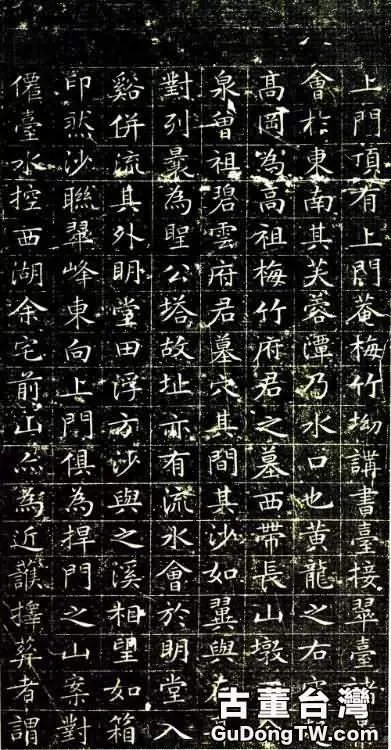 上門頂有上門菴梅竹坳講書臺接翠臺
會扵東南其芙蓉潭乃水口也黃龍之右
高岡為高祖梅竹府君之墓西帶長山墩
泉曾祖碧雲府君墓穴其間其沙如翼與
對列最為聖公塔故址亦有流水會於明堂入
谿併流其外明堂田浮方沙與之溪相望如箱
印然沙聯翠峰東向上門俱為捍門之山案對
僊臺水控西湖余宅前山亦為近護擇葬者謂
古董台灣
GuDongTW.com